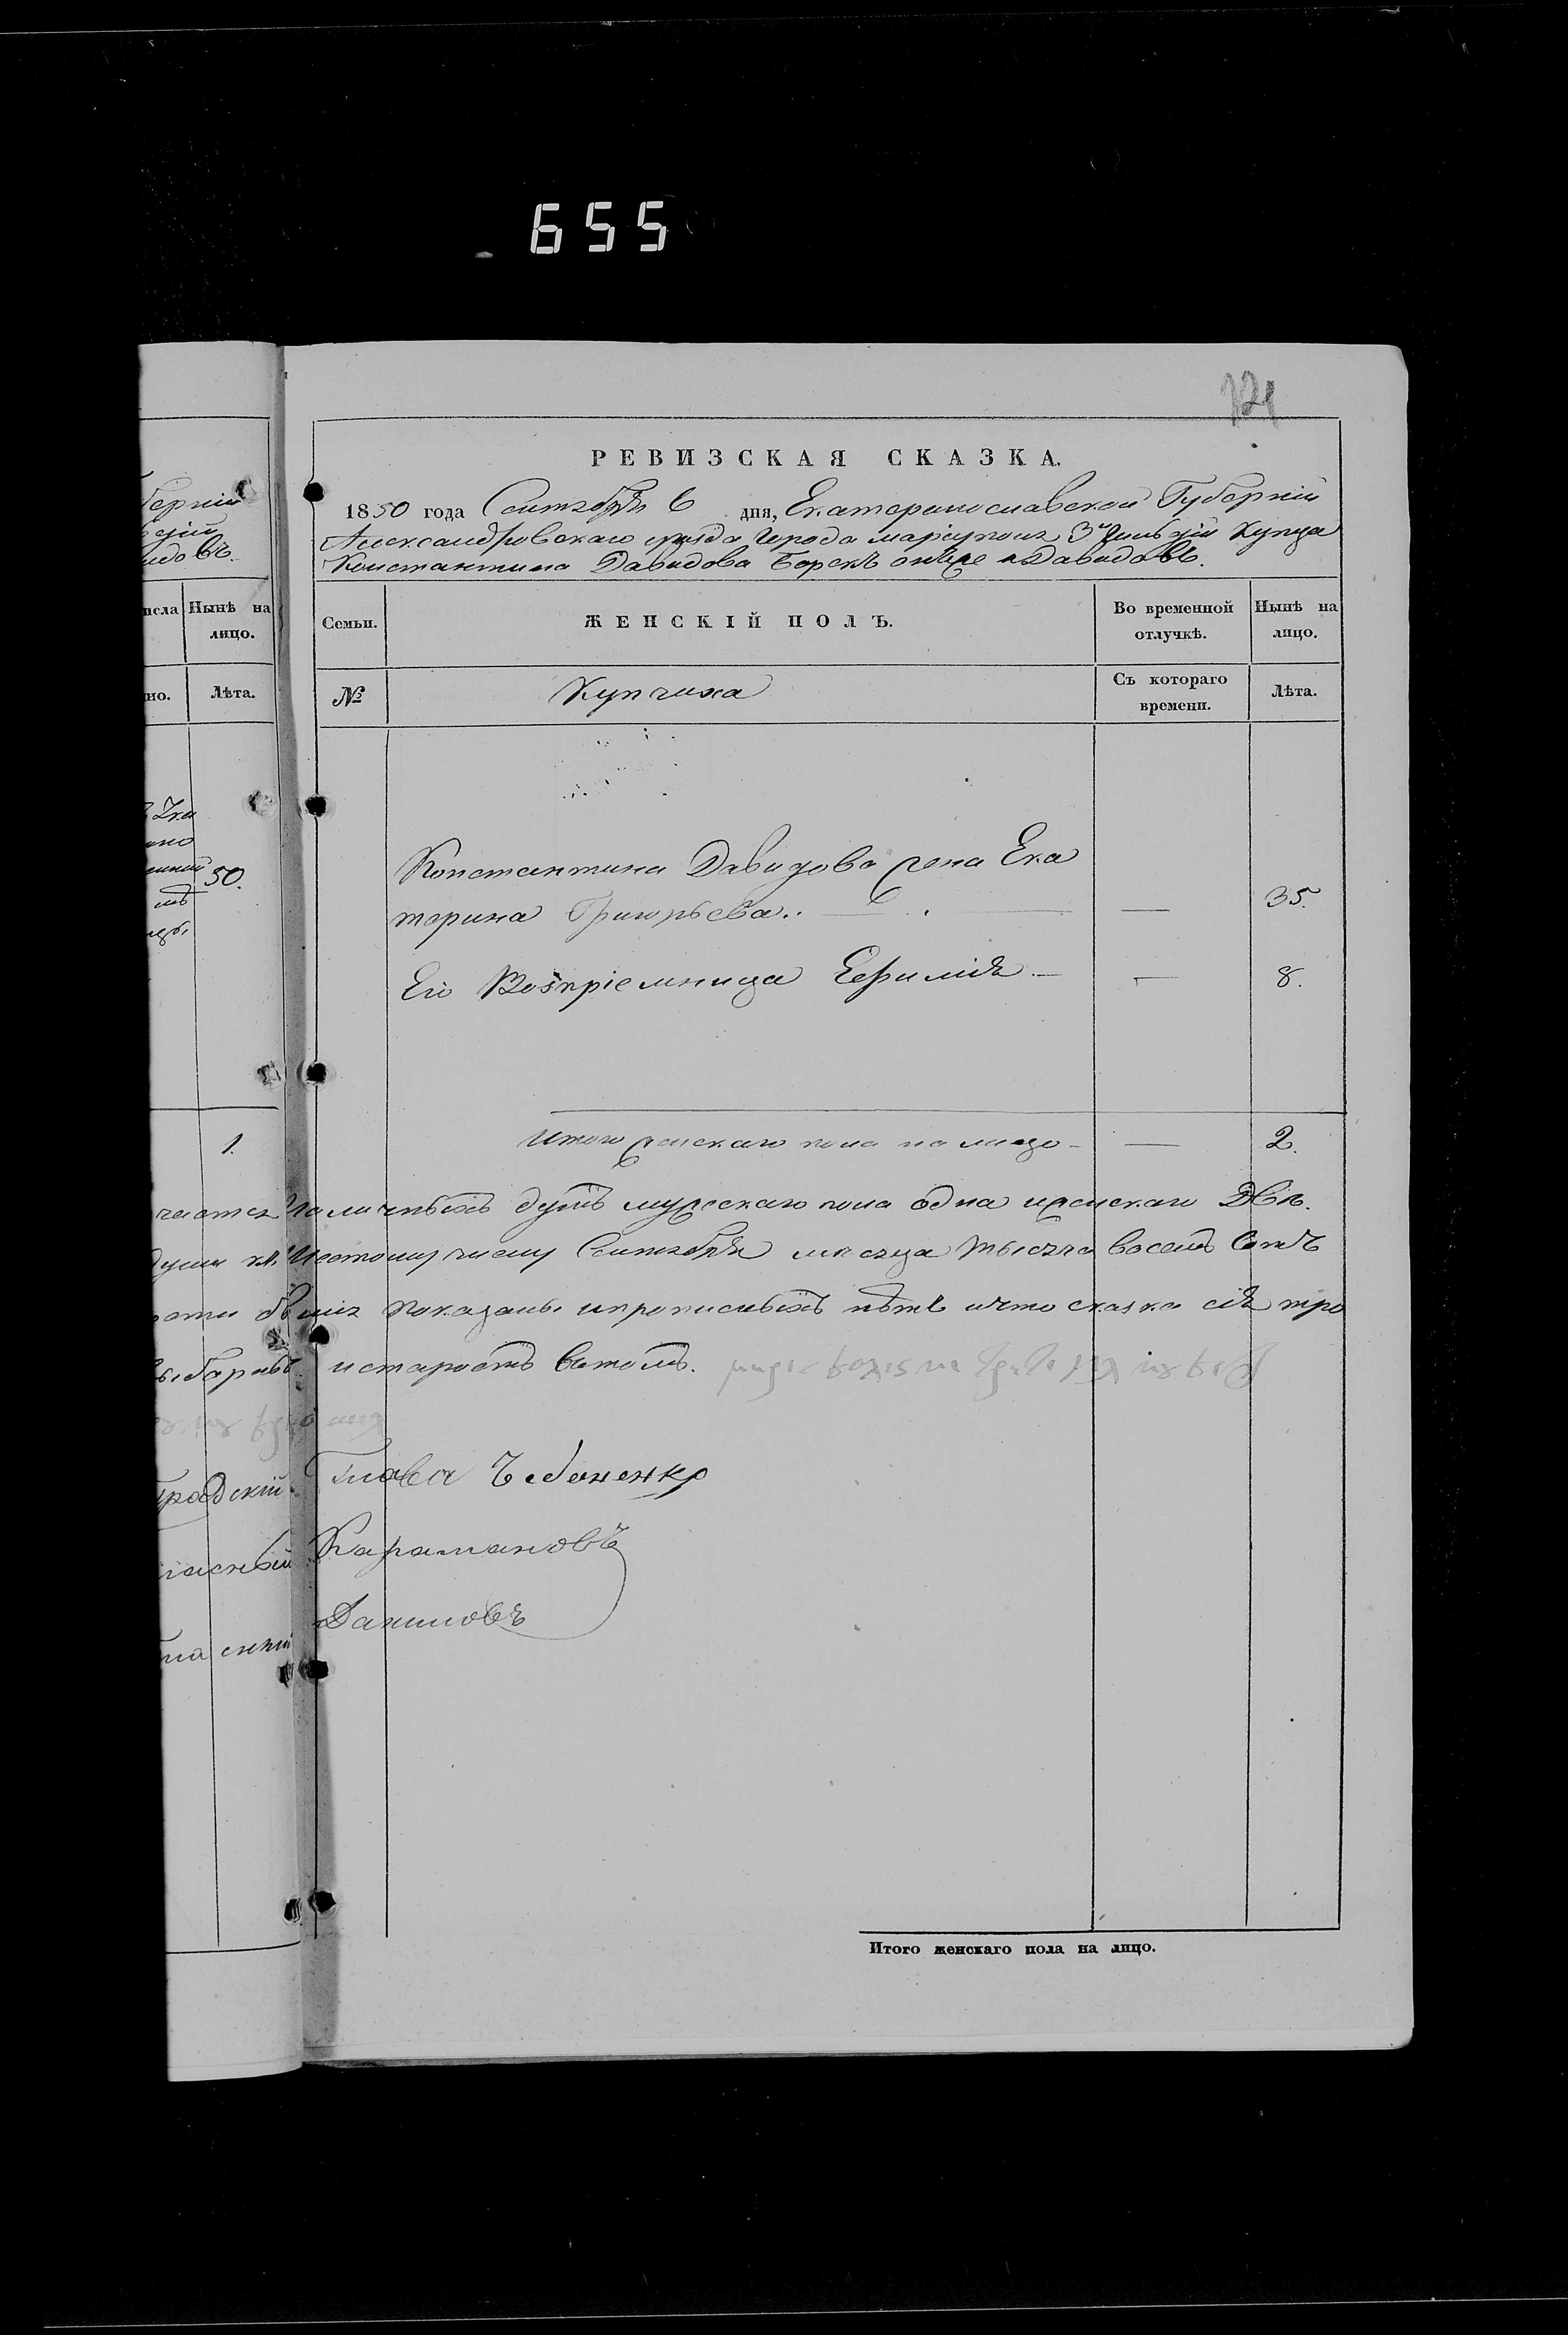 655
121
РЕВИЗСКАЯ СКАЗКА.
1850 года Сентября 6 дня, Екатеринославской Губерніи
Александровскаго уезда Города Мариуполя 3й Гильдіи Купца
Константина Давидова Борекъ онже и Давидовъ.
Семьи.
ЖЕНСКІЙ ПОЛЪ.
Во временной отлучкѣ.
Нынѣ на лицо.
№
Купчиха
Съ котораго времени.
Лѣта.
Константина Давидова жена Ека
терина Григорьева. — — 35.
Его Воспріемница Ефимія — — 8.
Итого женскаго пола на лицо — — 2.
Наличныхъ душъ мужескаго пола одна и женскаго Двѣ.
Шестому числу Сентября месяца тысяча восемь сотъ
показаны и прописныхъ нѣтъ и что сказка сія
и старостъ въ томъ.
Глава Чебаненко
Карамановъ
Даниловъ
Итого женскаго пола на лицо.
берніи
идовъ.
исла
Нынѣ на лицо.
но.
Лѣта.
50.
1.